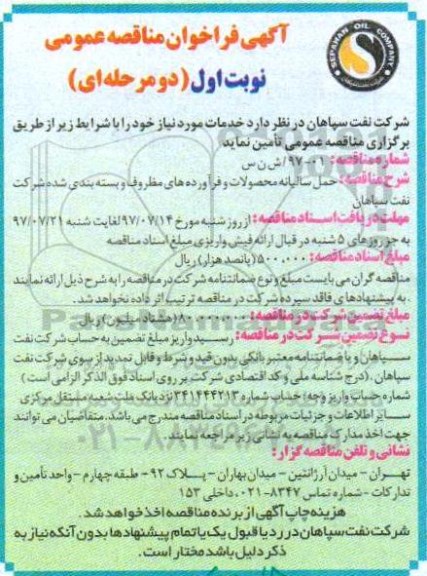 آگهی فراخوان مناقصه عمومی
نوبت اول (دو مرحله ای)
SEPAHAN OIL COMPANY
شرکت نفت سپاهان در نظر دارد خدمات مورد نیاز خود را با شرایط زیر از طریق
برگزاری مناقصه عمومی تأمین نماید
شماره مناقصه: ۰۱-۹۷/ش ن س
شرح مناقصه: حمل سالیانه محصولات و فرآورده های مظروف و بسته بندی شده شرکت
نفت سپاهان
مهلت دریافت اسناد مناقصه: از روز شنبه مورخ ۹۷/۰۷/۱۴ لغایت شنبه ۹۷/۰۷/۲۱
به جز روزهای ۵ شنبه در قبال ارائه فیش واریزی مبلغ اسناد مناقصه
مبلغ اسناد مناقصه: ۵۰۰,۰۰۰ (پانصد هزار) ریال
مناقصه گران می بایست مبلغ و نوع ضمانتنامه شرکت در مناقصه را به شرح ذیل ارائه نمایند
. به پیشنهادهای فاقد سپرده شرکت در مناقصه ترتیب اثر داده نخواهد شد.
مبلغ تضمین شرکت در مناقصه: ۸۰.۰۰۰.۰۰۰ (هشتاد میلیون) ریال
نوع تضمین شرکت در مناقصه: رسید واریز مبلغ تضمین به حساب شرکت نفت
سپاهان و یا ضمانتنامه معتبر بانکی بدون قید و شرط و قابل تمدید از سوی شرکت نفت
سپاهان. (درج شناسه ملی و کد اقتصادی شرکت بر روی اسناد فوق الذکر الزامی است)
شماره حساب واریز وجه: حساب شماره ۳۴۱۴۴۴۲۱۳ نزد بانک ملت شعبه مستقل مرکزی
سایر اطلاعات و جزئیات مربوطه در اسناد مناقصه مندرج می باشد. متقاضیان می توانند
جهت اخذ مدارک مناقصه به نشانی زیر مراجعه نمایند.
نشانی و تلفن مناقصه گزار:
تهران - میدان آرژانتین - میدان بهاران - پلاک ۹۲- طبقه چهارم - واحد تأمین و
تدارکات - شماره تماس ۸۳۴۷-۰۲۱، داخلی ۱۵۳
هزینه چاپ آگهی از برنده مناقصه اخذ خواهد شد.
شرکت نفت سپاهان در رد یا قبول یک یا تمام پیشنهادها بدون آنکه نیاز به
ذکر دلیل باشد مختار است.